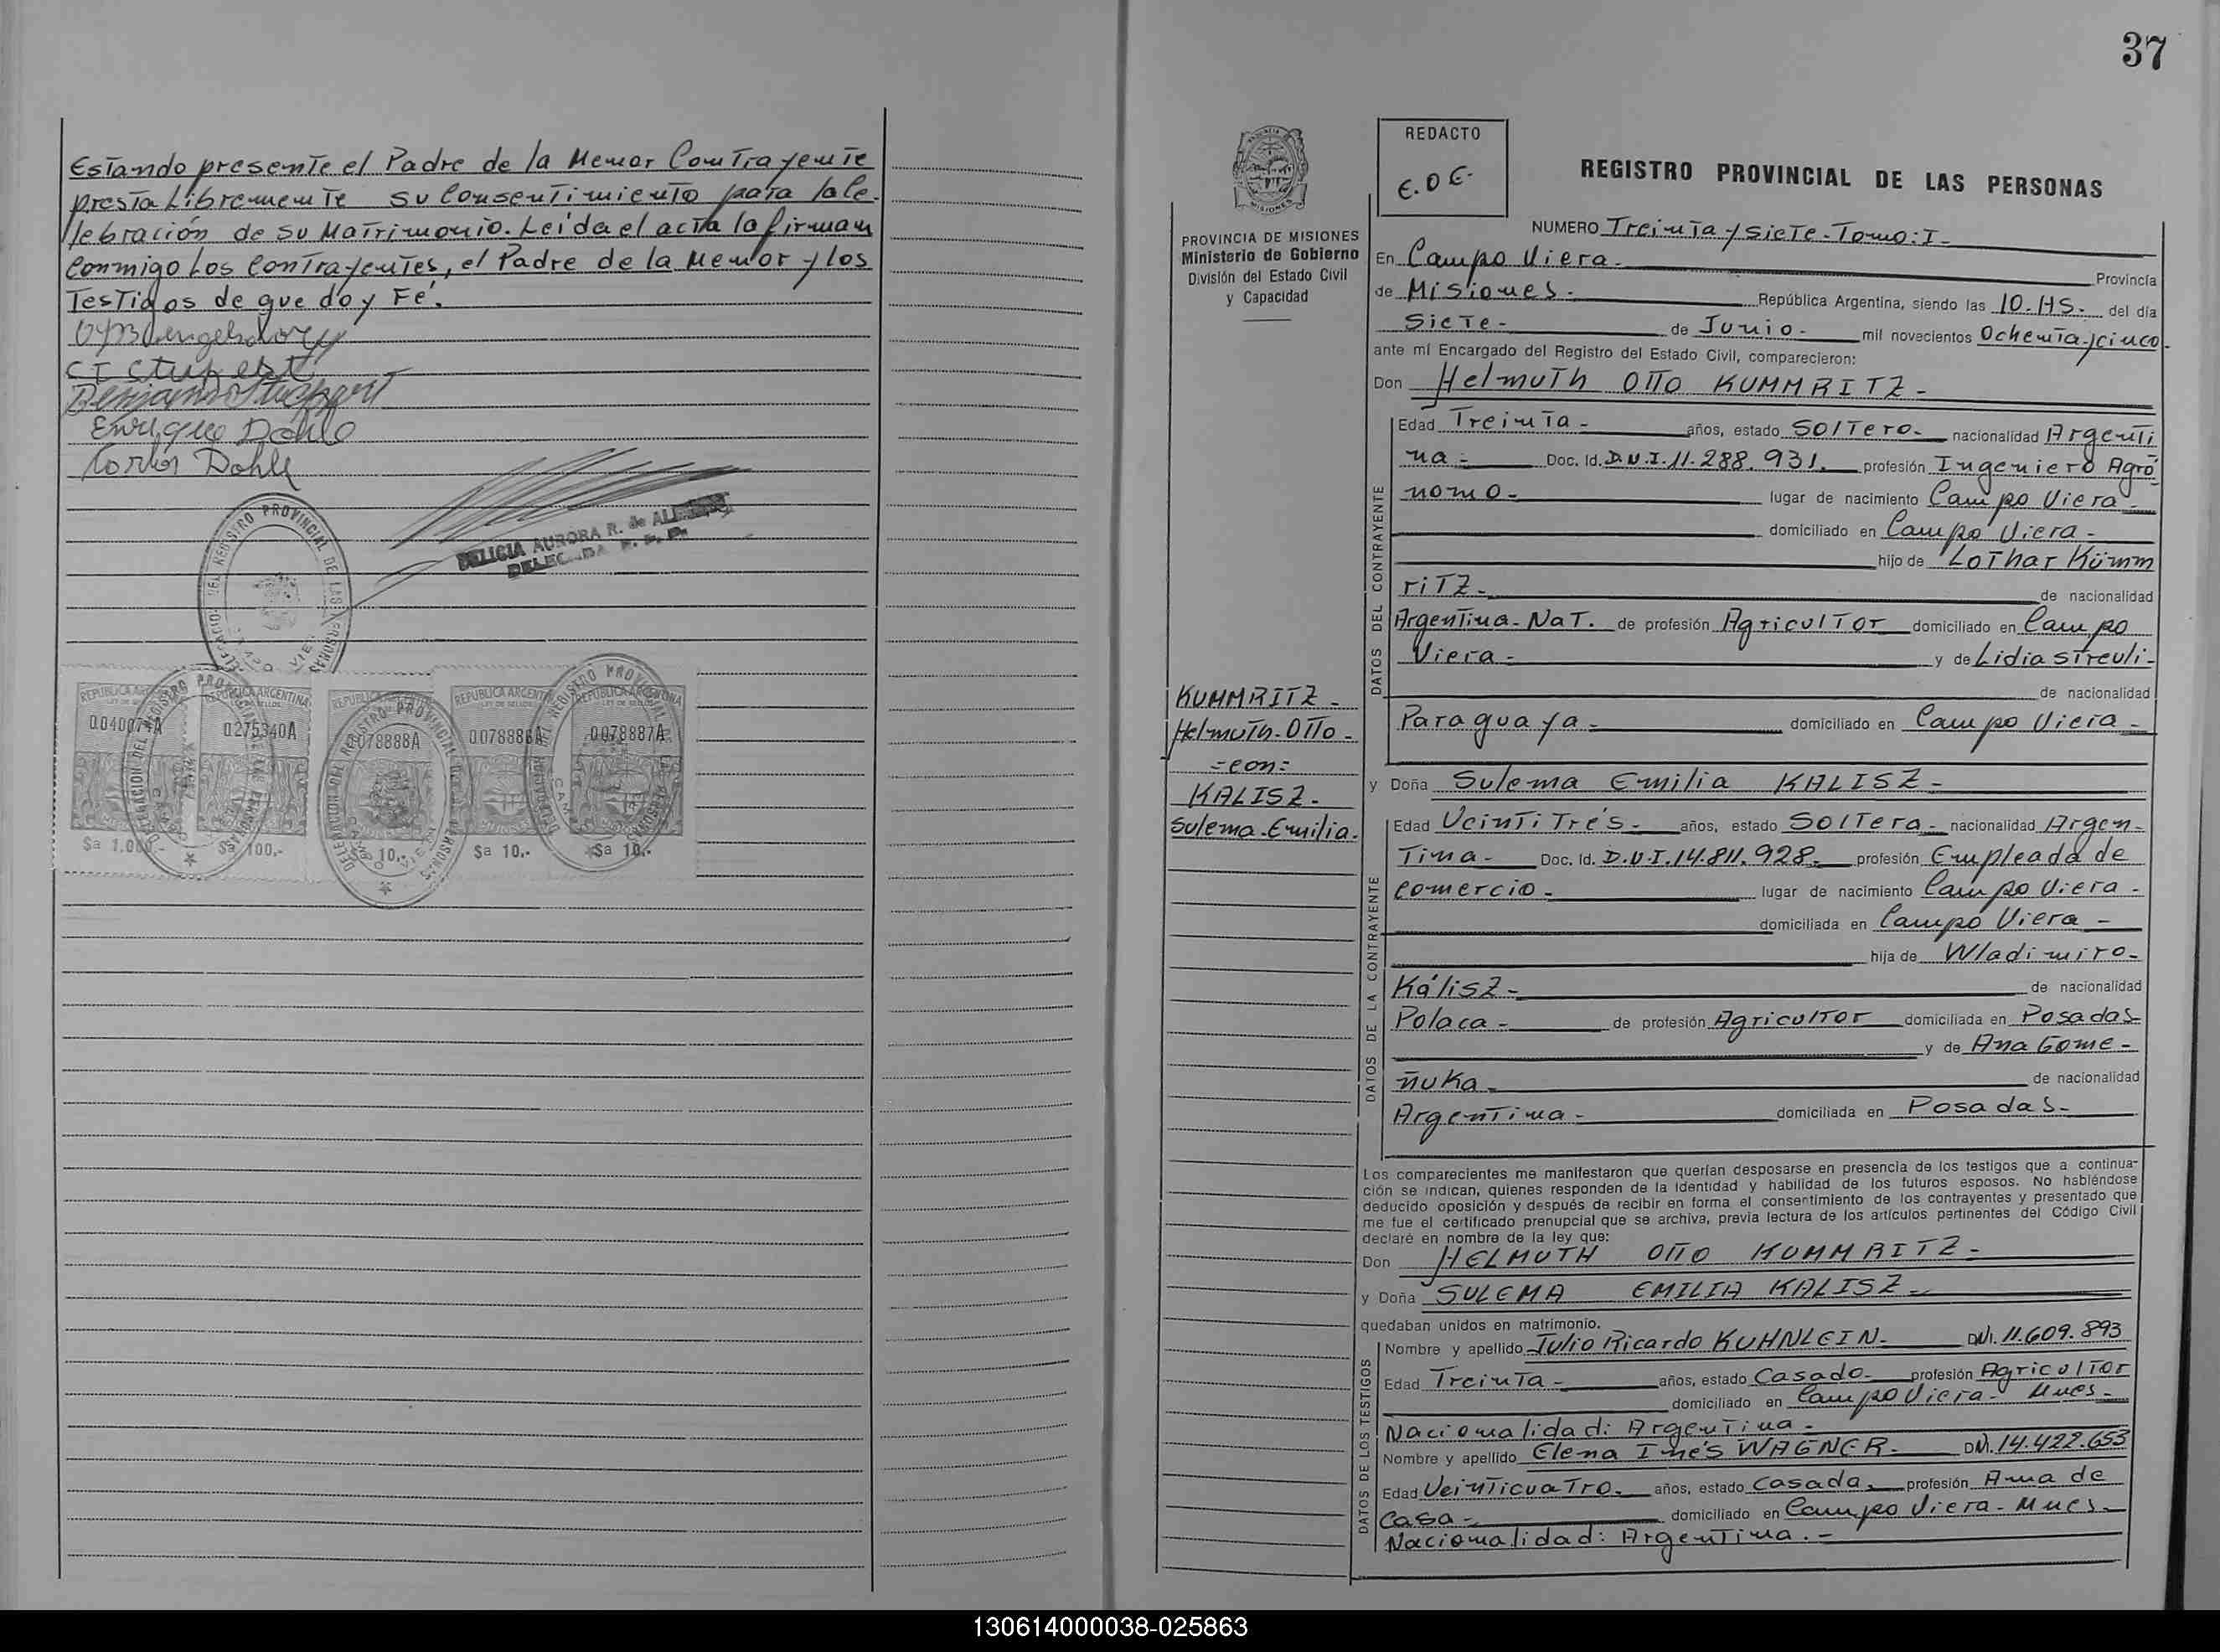 Estando presente el Padre de la Menor Contrayente
presta Libremente su Consentimiento para la Ce-
lebración de su Matrimonio. Leída el acta la firman
Conmigo Los Contrayentes, el Padre de la Menor y los
Testigos de que doy Fé.
Enrique Dohle
Dohle
DELEGACION DEL REGISTRO PROVINCIAL DE LAS PERSONAS
DELICIA AURORA R. de
REPUBLICA ARGENTINA
0275340A
0078888A
0078886A
0078887A
$a 100,-
10,-
$a 10,-
$a 10,-
37
REDACTO
E.D.E.
REGISTRO PROVINCIAL DE LAS PERSONAS
PROVINCIA DE MISIONES
Ministerio de Gobierno
División del Estado Civil
y Capacidad
NUMERO Treinta y siete - Tomo: I -
En Campo Viera - Provincia
de Misiones - República Argentina, siendo las 10.HS. del día
Siete - de Junio - mil novecientos Ochenta y cinco -
ante mí Encargado del Registro del Estado Civil, comparecieron:
Don Helmuth Otto KUMMRITZ -
Edad Treinta - años, estado Soltero - nacionalidad Argenti
na - Doc. Id. D.N.I. 11.288.931. profesión Ingeniero Agró
nomo - lugar de nacimiento Campo Viera -
domiciliado en Campo Viera -
hijo de Lothar Kümm
ritz - de nacionalidad
Argentina - Nat. de profesión Agricultor domiciliado en Campo
Viera - y de Lidia streuli -
de nacionalidad
Paraguaya - domiciliado en Campo Viera -
KUMMRITZ -
Helmuth - Otto -
= con =
KALISZ -
Sulema - Emilia -
y Doña Sulema Emilia KALISZ -
Edad Veinti Trés - años, estado Soltera - nacionalidad Argen-
tina - Doc. Id. D.N.I. 14.811.928 - profesión Empleada de
comercio - lugar de nacimiento Campo Viera -
domiciliada en Campo Viera -
hija de Wladimiro -
Kálisz - de nacionalidad
Polaca - de profesión Agricultor domiciliada en Posadas -
y de Ana Gome -
ñuka - de nacionalidad
Argentina - domiciliada en Posadas -
DATOS DEL CONTRAYENTE
DATOS DE LA CONTRAYENTE
Los comparecientes me manifestaron que querían desposarse en presencia de los testigos que a continua-
ción se indican, quienes responden de la identidad y habilidad de los futuros esposos. No habiéndose
deducido oposición y después de recibir en forma el consentimiento de los contrayentes y presentado que
me fue el certificado prenupcial que se archiva, previa lectura de los artículos pertinentes del Código Civil
declaré en nombre de la ley que:
Don HELMUTH OTTO KUMMRITZ -
y Doña SULEMA EMILIA KALISZ -
quedaban unidos en matrimonio.
DATOS DE LOS TESTIGOS
Nombre y apellido Julio Ricardo KUHNLEIN - DNI. 11.609.893
Edad Treinta - años, estado Casado - profesión Agricultor
domiciliado en Campo Viera - Mnes -
Nacionalidad: Argentina -
Nombre y apellido Elena Inés WAGNER - DNI. 14.422.653
Edad Veinticuatro - años, estado Casada - profesión Ama de
Casa - domiciliado en Campo Viera - Mnes -
Nacionalidad: Argentina. -
130614000038-025863